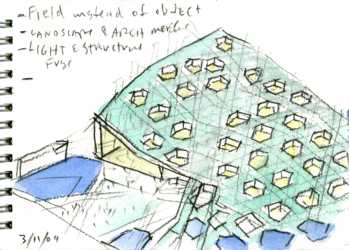 - Field instead of object
- LANDSCAPE & ARCH
- LIGHT & Structure
Fuse
-
3/11/04